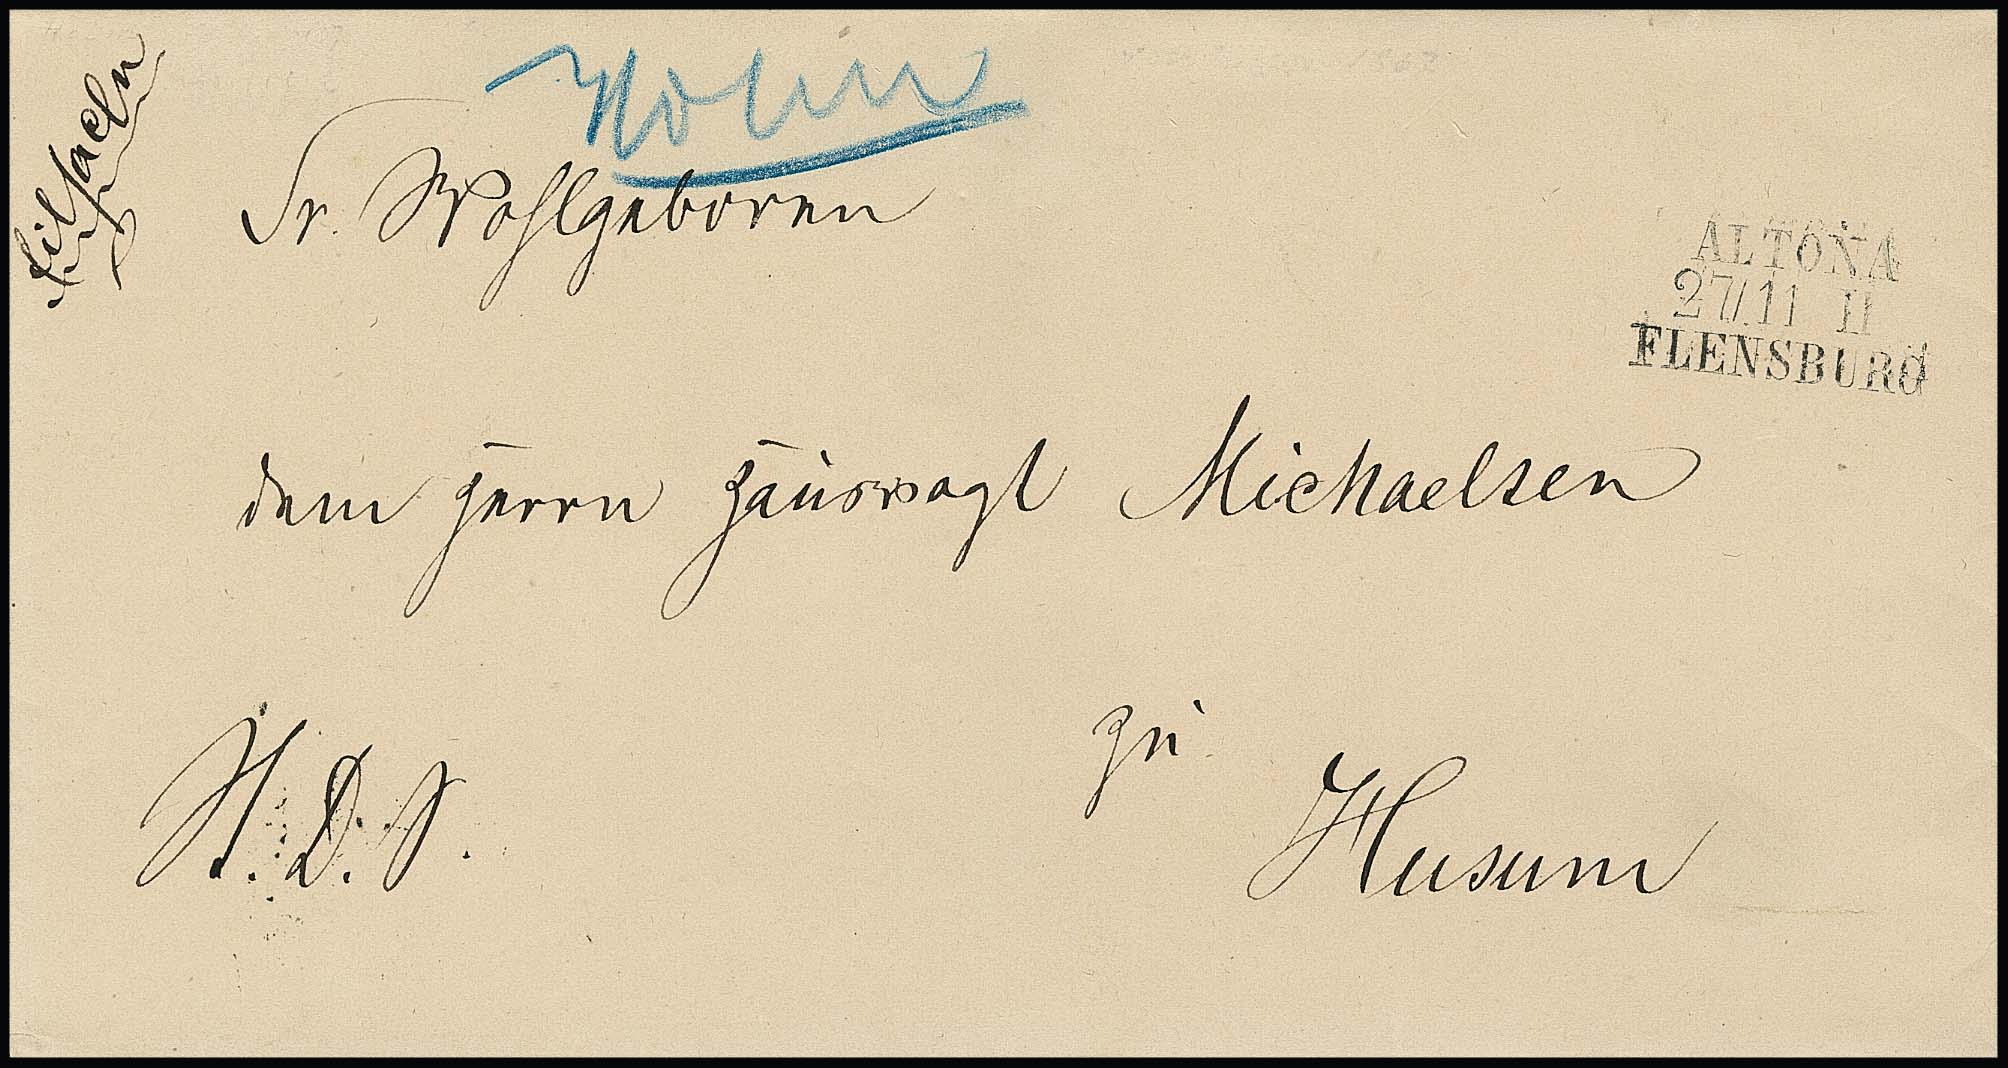 Eilsachen
Sr. Wohlgeboren
ALTONA
27/11 II
FLENSBURG
dem Herrn Hausvogt Michaelsen
H. D. S.
zu
Husum